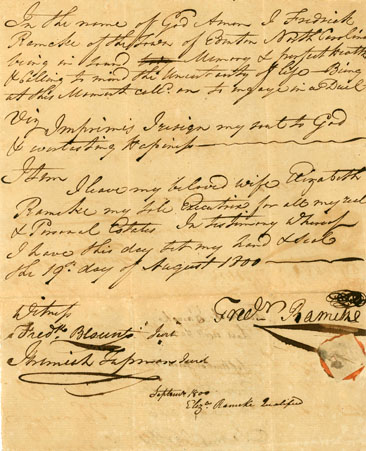 In the name of God Amen I Fredrick
Ramcke of the Town of Edenton North Carolina
being in sound Memory & perfect health
& calling to mind the Uncertainty of life Being
at this Moment call'd on to engage in a Duel
Viz Imprimis I resign my soul to God
& everlasting Hapiness
Item
I leave my beloved wife Elizabeth
Ramcke my sole Executrix for all my real
& Personal Estates. In testimony whereof
I have this day set my hand & seal
the 19th day of August 1800
Fredk Ramcke
Witness
Fredk Blount Jurat
Jeremiah Jurat
Septemr 1800
Elizth Ramcke Qualified